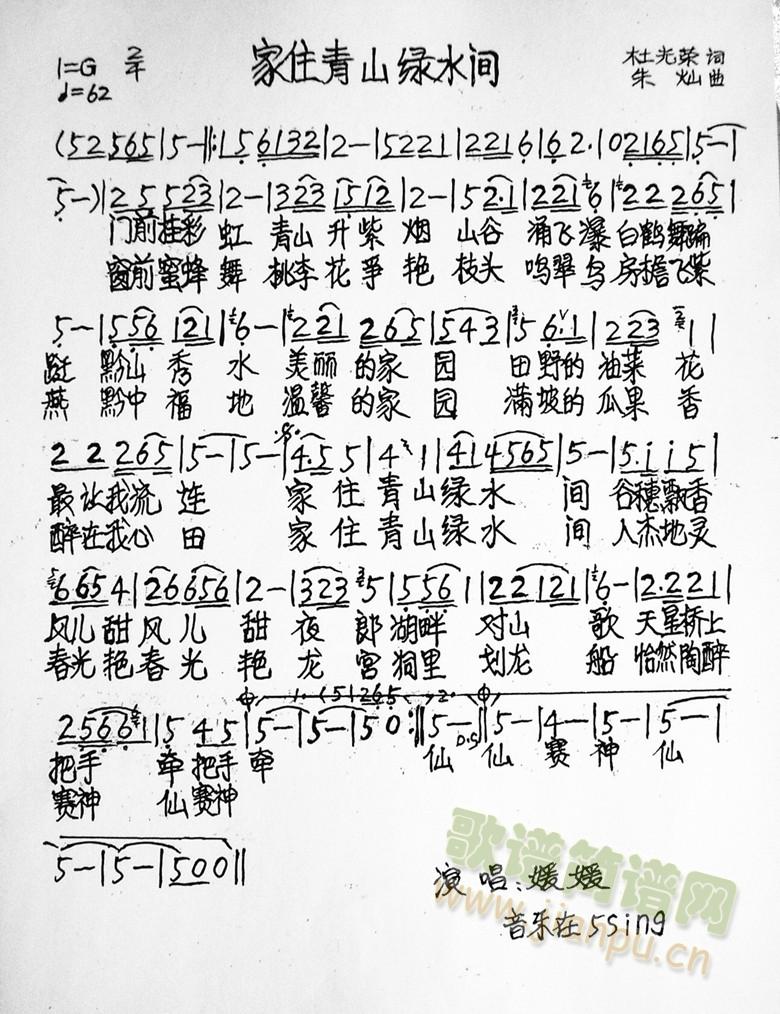 家住青山绿水间
1=G 2/4
♩=62
杜光荣 词
朱 灿 曲
(52 565|5-‖:15 6132|2-|5221|2216|62·|02165|5-|
5-)|25 523|2-|323 512|2-|52·1|221 6|22 265|
门前挂彩 虹 青山 升紫 烟 山谷 涌飞瀑 白鹤舞蹁
窗前蜜蜂 舞 桃李 花争 艳 枝头 鸣翠鸟 房檐飞紫
5-|556 121|6-|221 265|543|5 6·1|223 1|
跹 黔山 秀 水 美丽 的家 园 田野的 油菜 花
燕 黔中 福 地 温馨 的家 园 满坡的 瓜果 香
22 265|5-|5-|4·5 5|4 1|41 4565|5-|5·i i5|
最让我流 连 家 住 青山绿水 间 谷穗飘香
醉在我心 田 家 住 青山绿水 间 人杰地灵
665 4|26 656|2-|323 5|556 1|22 121|6-|2·2 21|
风儿甜 风儿 甜 夜 郎 湖畔 对山 歌 天星桥上
春光艳 春光 艳 龙 宫 洞里 划龙 船 怡然陶醉
2566 1|5 45|5-|5-|50:‖5-‖5-|4-|5-|5-|
1·(51265 2·
D.S
把手 牵 把手 牵 仙 仙 赛 神 仙
赛神 仙 赛神
5-|5-|500‖
演唱:媛媛
音乐在5Sing
歌谱简谱网
www.jianpu.cn